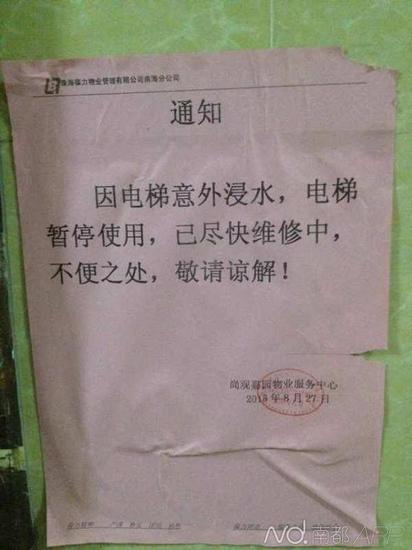 珠海葆力物业管理有限公司南海分公司
通知
因电梯意外浸水，电梯
暂停使用，已尽快维修中，
不便之处，敬请谅解！
尚观嘉园物业服务中心
2013年8月27日
南都APP